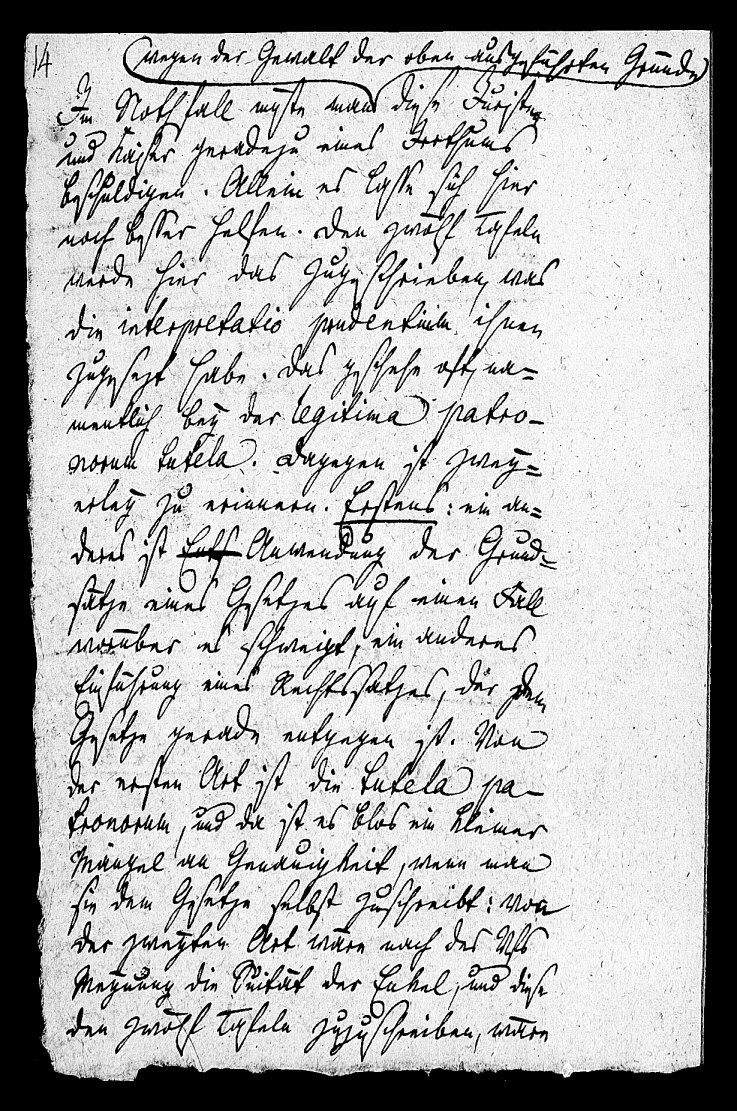 14
wegen der Gewalt der oben ausgeführten Gründe
Im Nothfall müste man diese Juristen
und Kaiser geradezu eines Irrthums
beschuldigen. Allein es lasse sich hier
noch besser helfen. Den zwölf Tafeln
werde hier das zugeschrieben, was
die interpretatio prudentium ihnen
zugesezt habe. Das geschehe oft, na-
mentlich bey der legitima patro-
norum tutela. Dagegen ist zwey-
erley zu erinnern. Erstens: ein an-
deres ist Anwendung der Grund-
sätze eines Gesetzes auf einen Fall
worüber es schweigt, ein anderes
Einführung eines Rechtssatzes, der dem
Gesetze gerade entgegen ist. Von
der ersten Art ist die tutela pa-
tronorum, und da ist es blos ein kleiner
Mangel an Genauigkeit, wenn man
sie dem Gesetze selbst zuschreibt: von
der zweyten Art wäre nach des Vfs
Meynung die Suität der Enkel, und diese
den zwölf Tafeln zuzuschreiben, wäre